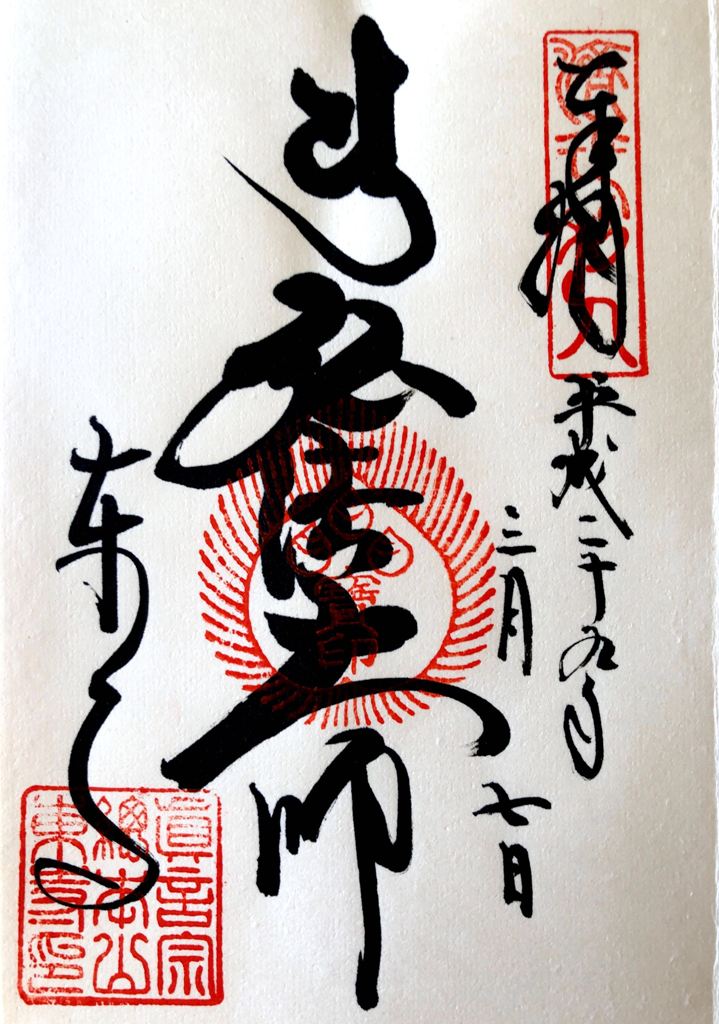 奉拝
平成二十九年
三月
七日
弘法大師
東寺
眞言宗
總本山
東寺印